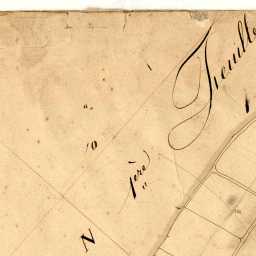 N.º 1ère
Feuille